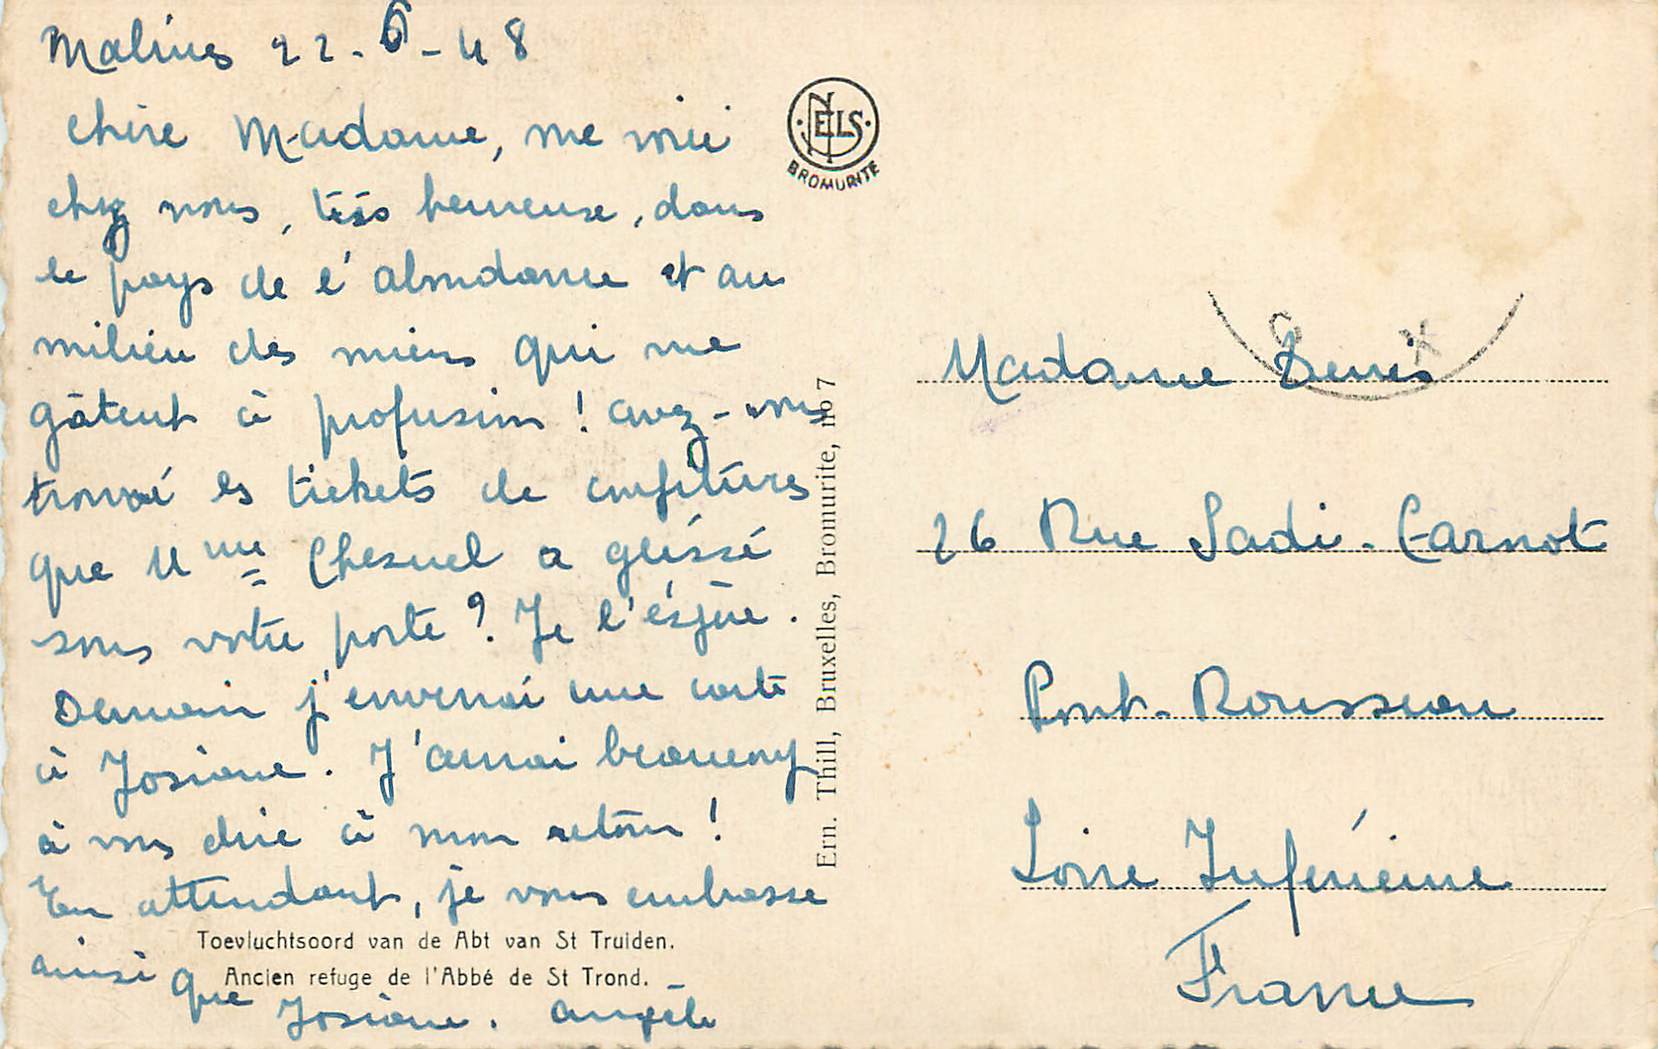 Malines 22-6-48
Chère Madame, me voici
chez nous, très heureuse, dans
le pays de l'abondance et au
milieu des miens qui me
gâtent à profusion ! avez-vous
trouvé les tickets de confitures
que Mme Chesnel a glissé
sous votre porte ? Je l'éspère.
Demain j'enverrai une carte
à Josiane. J'aurai beaucoup
à vous dire à mon retour !
En attendant, je vous embrasse
ainsi que Josiane. Angèle
Toevluchtsoord van de Abt van St Truiden.
Ancien refuge de l'Abbé de St Trond.
NELS
BROMURITE
Ern. Thill, Bruxelles, Bromurite, no 7
Madame Denis
26 Rue Sadi-Carnot
Pont-Rousseau
Loire Inférieure
France